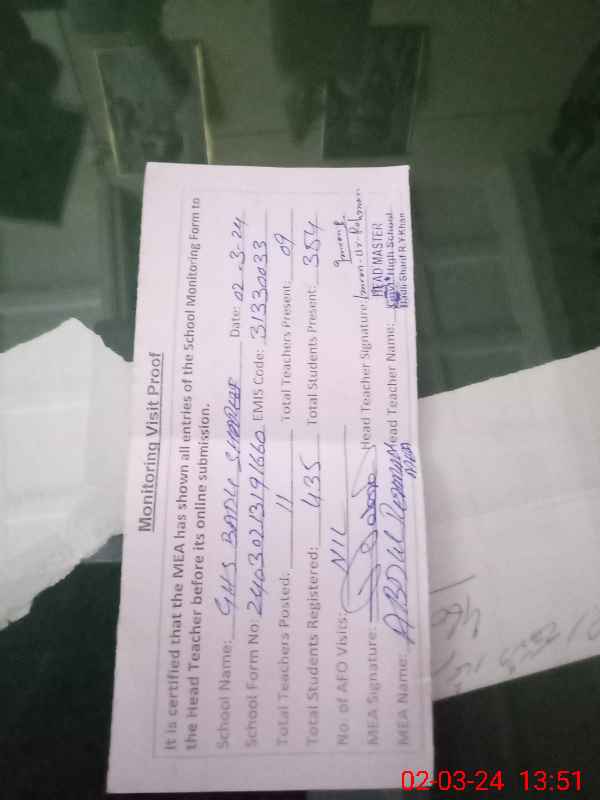 Monitoring Visit Proof
It is certified that the MEA has shown all entries of the School Monitoring Form to
the Head Teacher before its online submission.
School Name: GHS BADLI SHAREEF Date: 02-3-24
School Form No: 2403021319 1660 EMIS Code: 31330033
Total Teachers Posted: 11 Total Teachers Present: 09
Total Students Registered: 435 Total Students Present: 354
No. of AFO Visits: NIL
MEA Signature: Head Teacher Signature: Imran-ur-Rehman
HEAD MASTER
MEA Name: ABDUL Rehman Head Teacher Name: High School
Badli Sharif R.Y.Khan
02-03-24 13:51